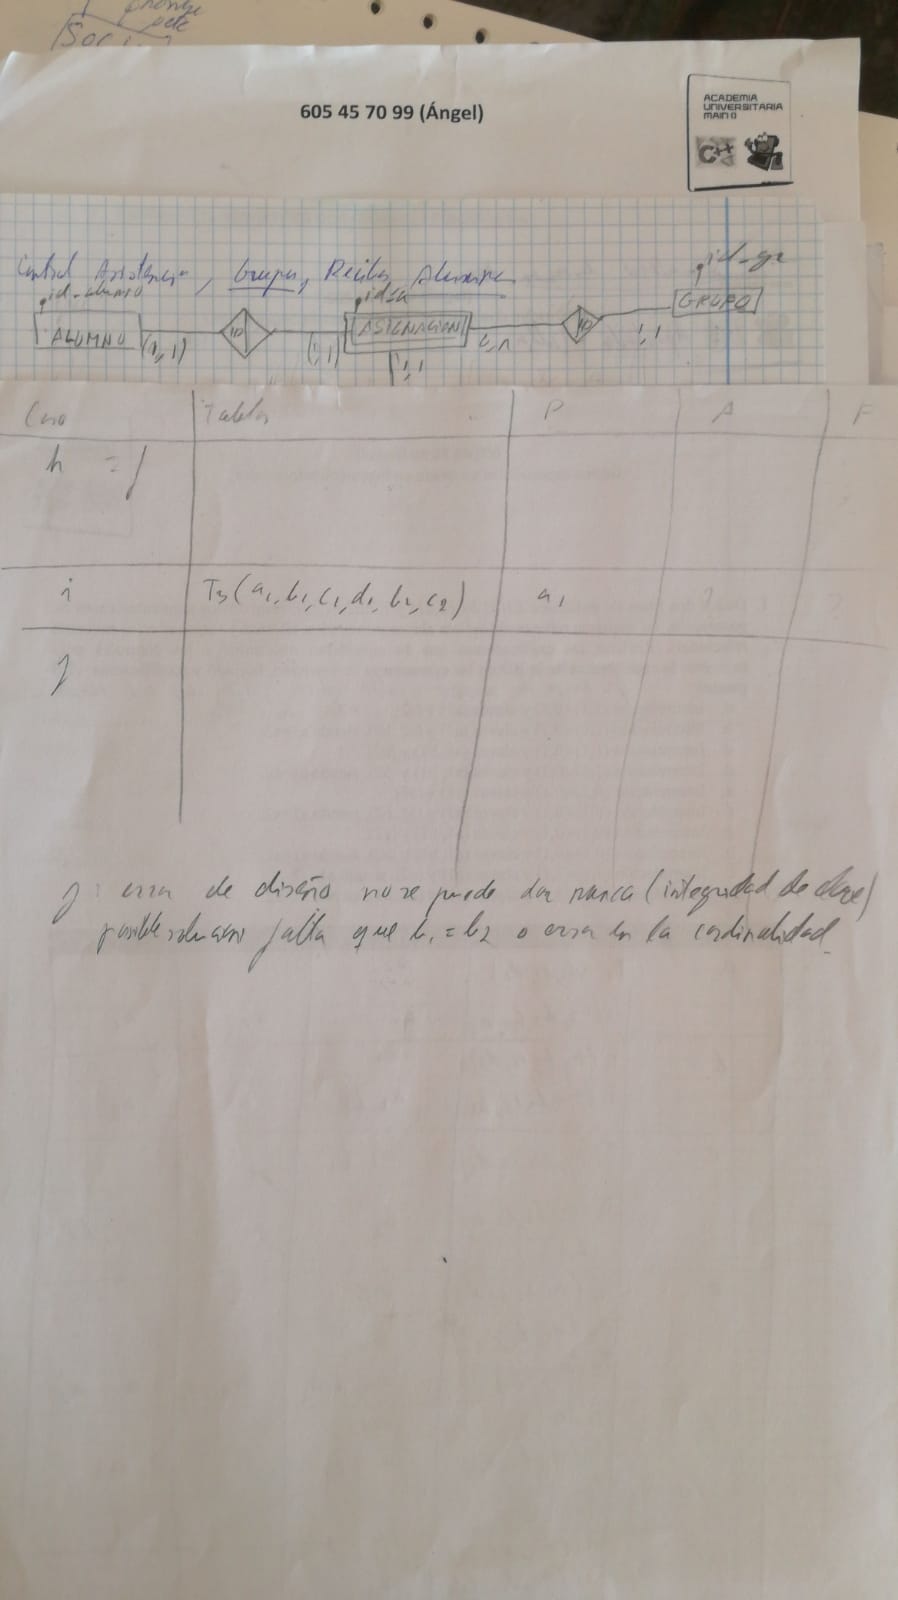 605 45 70 99 (Ángel)
ACADEMIA
UNIVERSITARIA
MAIN()
C++
Control Asistencia, Grupos, Recibos Alumnos
id_alumno
id_a
id_gr
ALUMNO
(1,1)
ID
(1,1)
ASIGNACION
1,n
ID
1,1
GRUPO
1,1
Caso Tablas P A F
h = f
i T3(a1, b1, c1, d1, b2, c2) a1
j
j: error de diseño no se puede dar nunca (integridad de clave)
posible solucion falta que b1 = b2 o error en la cardinalidad.